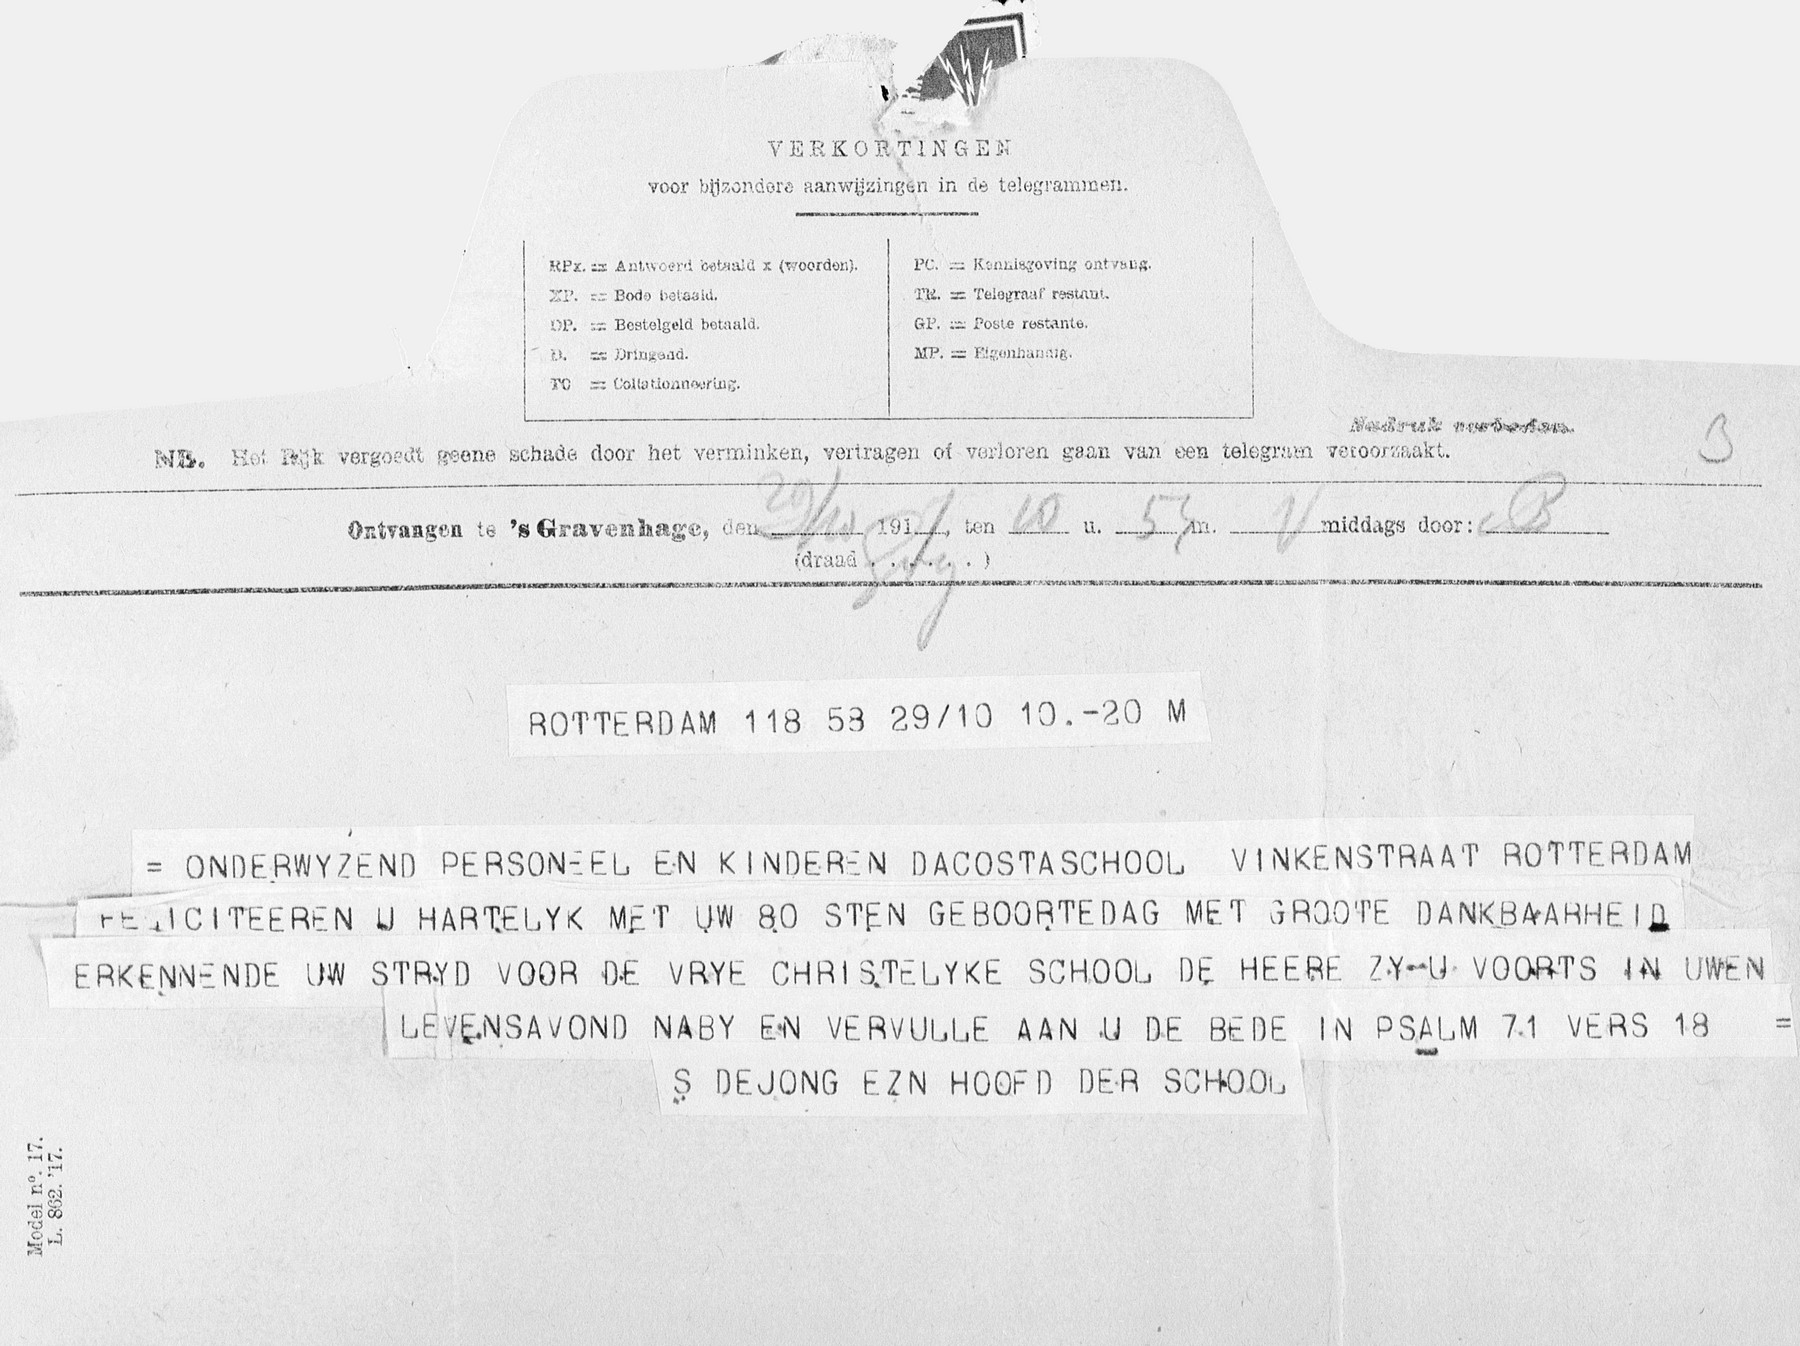 VERKORTINGEN
voor bijzondere aanwijzingen in de telegrammen.
RPx. = Antwoord betaald x (woorden).
XP. = Bode betaald.
DP. = Bestelgeld betaald.
D. = Dringend.
TC = Collationneering.
PC. = Kennisgeving ontvang.
TR. = Telegraaf restant.
GP. = Poste restante.
MP. = Eigenhandig.
Nadruk verboden.
3
NB. Het Rijk vergoedt geene schade door het verminken, vertragen of verloren gaan van een telegram veroorzaakt.
Ontvangen te 's Gravenhage, den 29/10 191 , ten 10 u. m. V middags door: B
(draad . . . . . . )
ROTTERDAM 118 58 29/10 10.-20 M
= ONDERWYZEND PERSONEEL EN KINDEREN DACOSTASCHOOL VINKENSTRAAT ROTTERDAM
FELICITEEREN U HARTELYK MET UW 80 STEN GEBOORTEDAG MET GROOTE DANKBAARHEID
ERKENNENDE UW STRYD VOOR DE VRYE CHRISTELYKE SCHOOL DE HEERE ZY U VOORTS IN UWEN
LEVENSAVOND NABY EN VERVULLE AAN U DE BEDE IN PSALM 71 VERS 18 =
S DEJONG EZN HOOFD DER SCHOOL
Model nº. 17.
L. 862. '17.